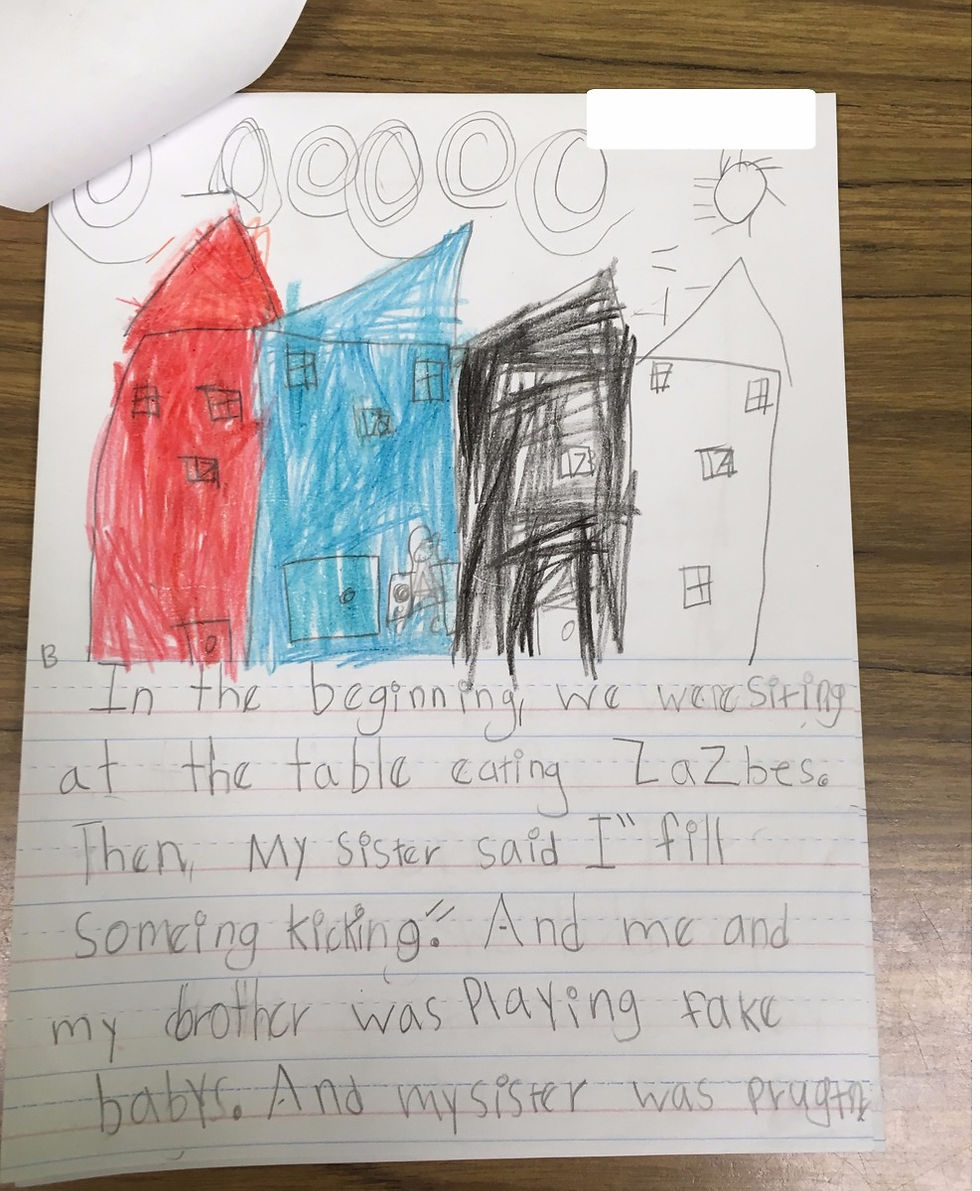 B
In the beginning, we were sitting
at the table eating ZaZbes.
Then, My sister said I" fill
someing kicking." And me and
my brother was Playing fake
babys. And my sister was pragtn